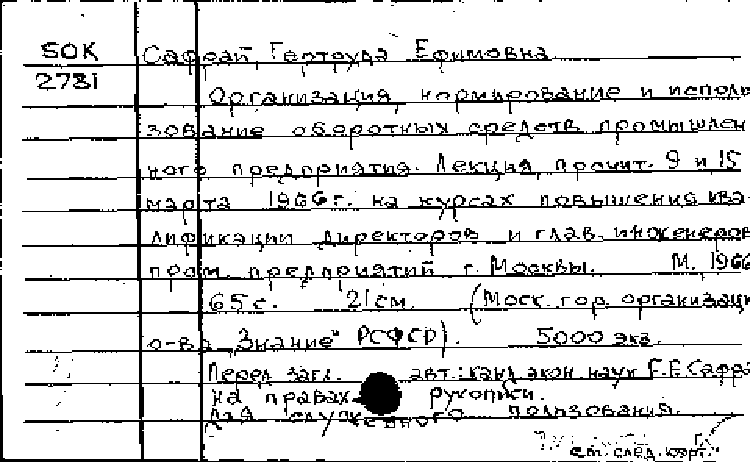 SOK
2781
Сафрай, Гертруда Ефимовна
Организация, нормирование и исполь
зование оборотных средств промышлен
ного предприятия. Лекция, прочит. 9 и 15
марта 1966 г. на курсах повышения ква
лификации директоров и глав. инженеров
пром. предприятий г. Москвы. М. 1966
65 с. 21 см. (Моск. гор. организаци
о-ва "Знание" РСФСР). 5000 экз.
Перед загл. авт.: канд. экон. наук Г.Е. Сафра
На правах рукописи.
Для служебного пользования.
см. след. карт.